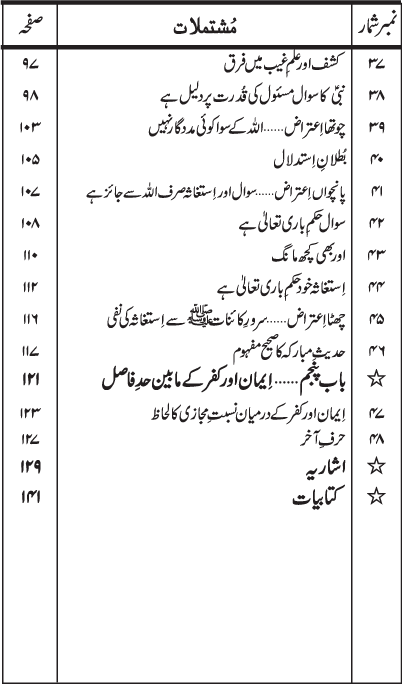 نمبر شمار مُشتملات صفحہ
۳۷ کشف اور علمِ غیب میں فرق ۹۷
۳۸ نبیؐ کا سوال مسئول کی قُدرت پر دلیل ہے ۹۸
۳۹ چوتھا اِعتراض......اللہ کے سوا کوئی مددگار نہیں ۱۰۳
۴۰ بُطلانِ اِستدلال ۱۰۵
۴۱ پانچواں اِعتراض......سوال اور اِستغاثہ صرف اللہ سے جائز ہے ۱۰۷
۴۲ سوال حکمِ باری تعالیٰ ہے ۱۰۸
۴۳ اور بھی کچھ مانگ ۱۱۰
۴۴ اِستغاثہ خود حکمِ باری تعالیٰ ہے ۱۱۲
۴۵ چھٹا اِعتراض......سرورِ کائنات ﷺ سے اِستغاثہ کی نفی ۱۱۶
۴۶ حدیثِ مبارکہ کا صحیح مفہوم ۱۱۷
☆ باب پنجم......اِیمان اور کفر کے مابین حدِ فاصل ۱۲۱
۴۷ اِیمان اور کفر کے درمیان نسبتِ مجازی کا لحاظ ۱۲۳
۴۸ حرفِ آخر ۱۲۷
☆ اشاریہ ۱۲۹
☆ کتابیات ۱۴۱